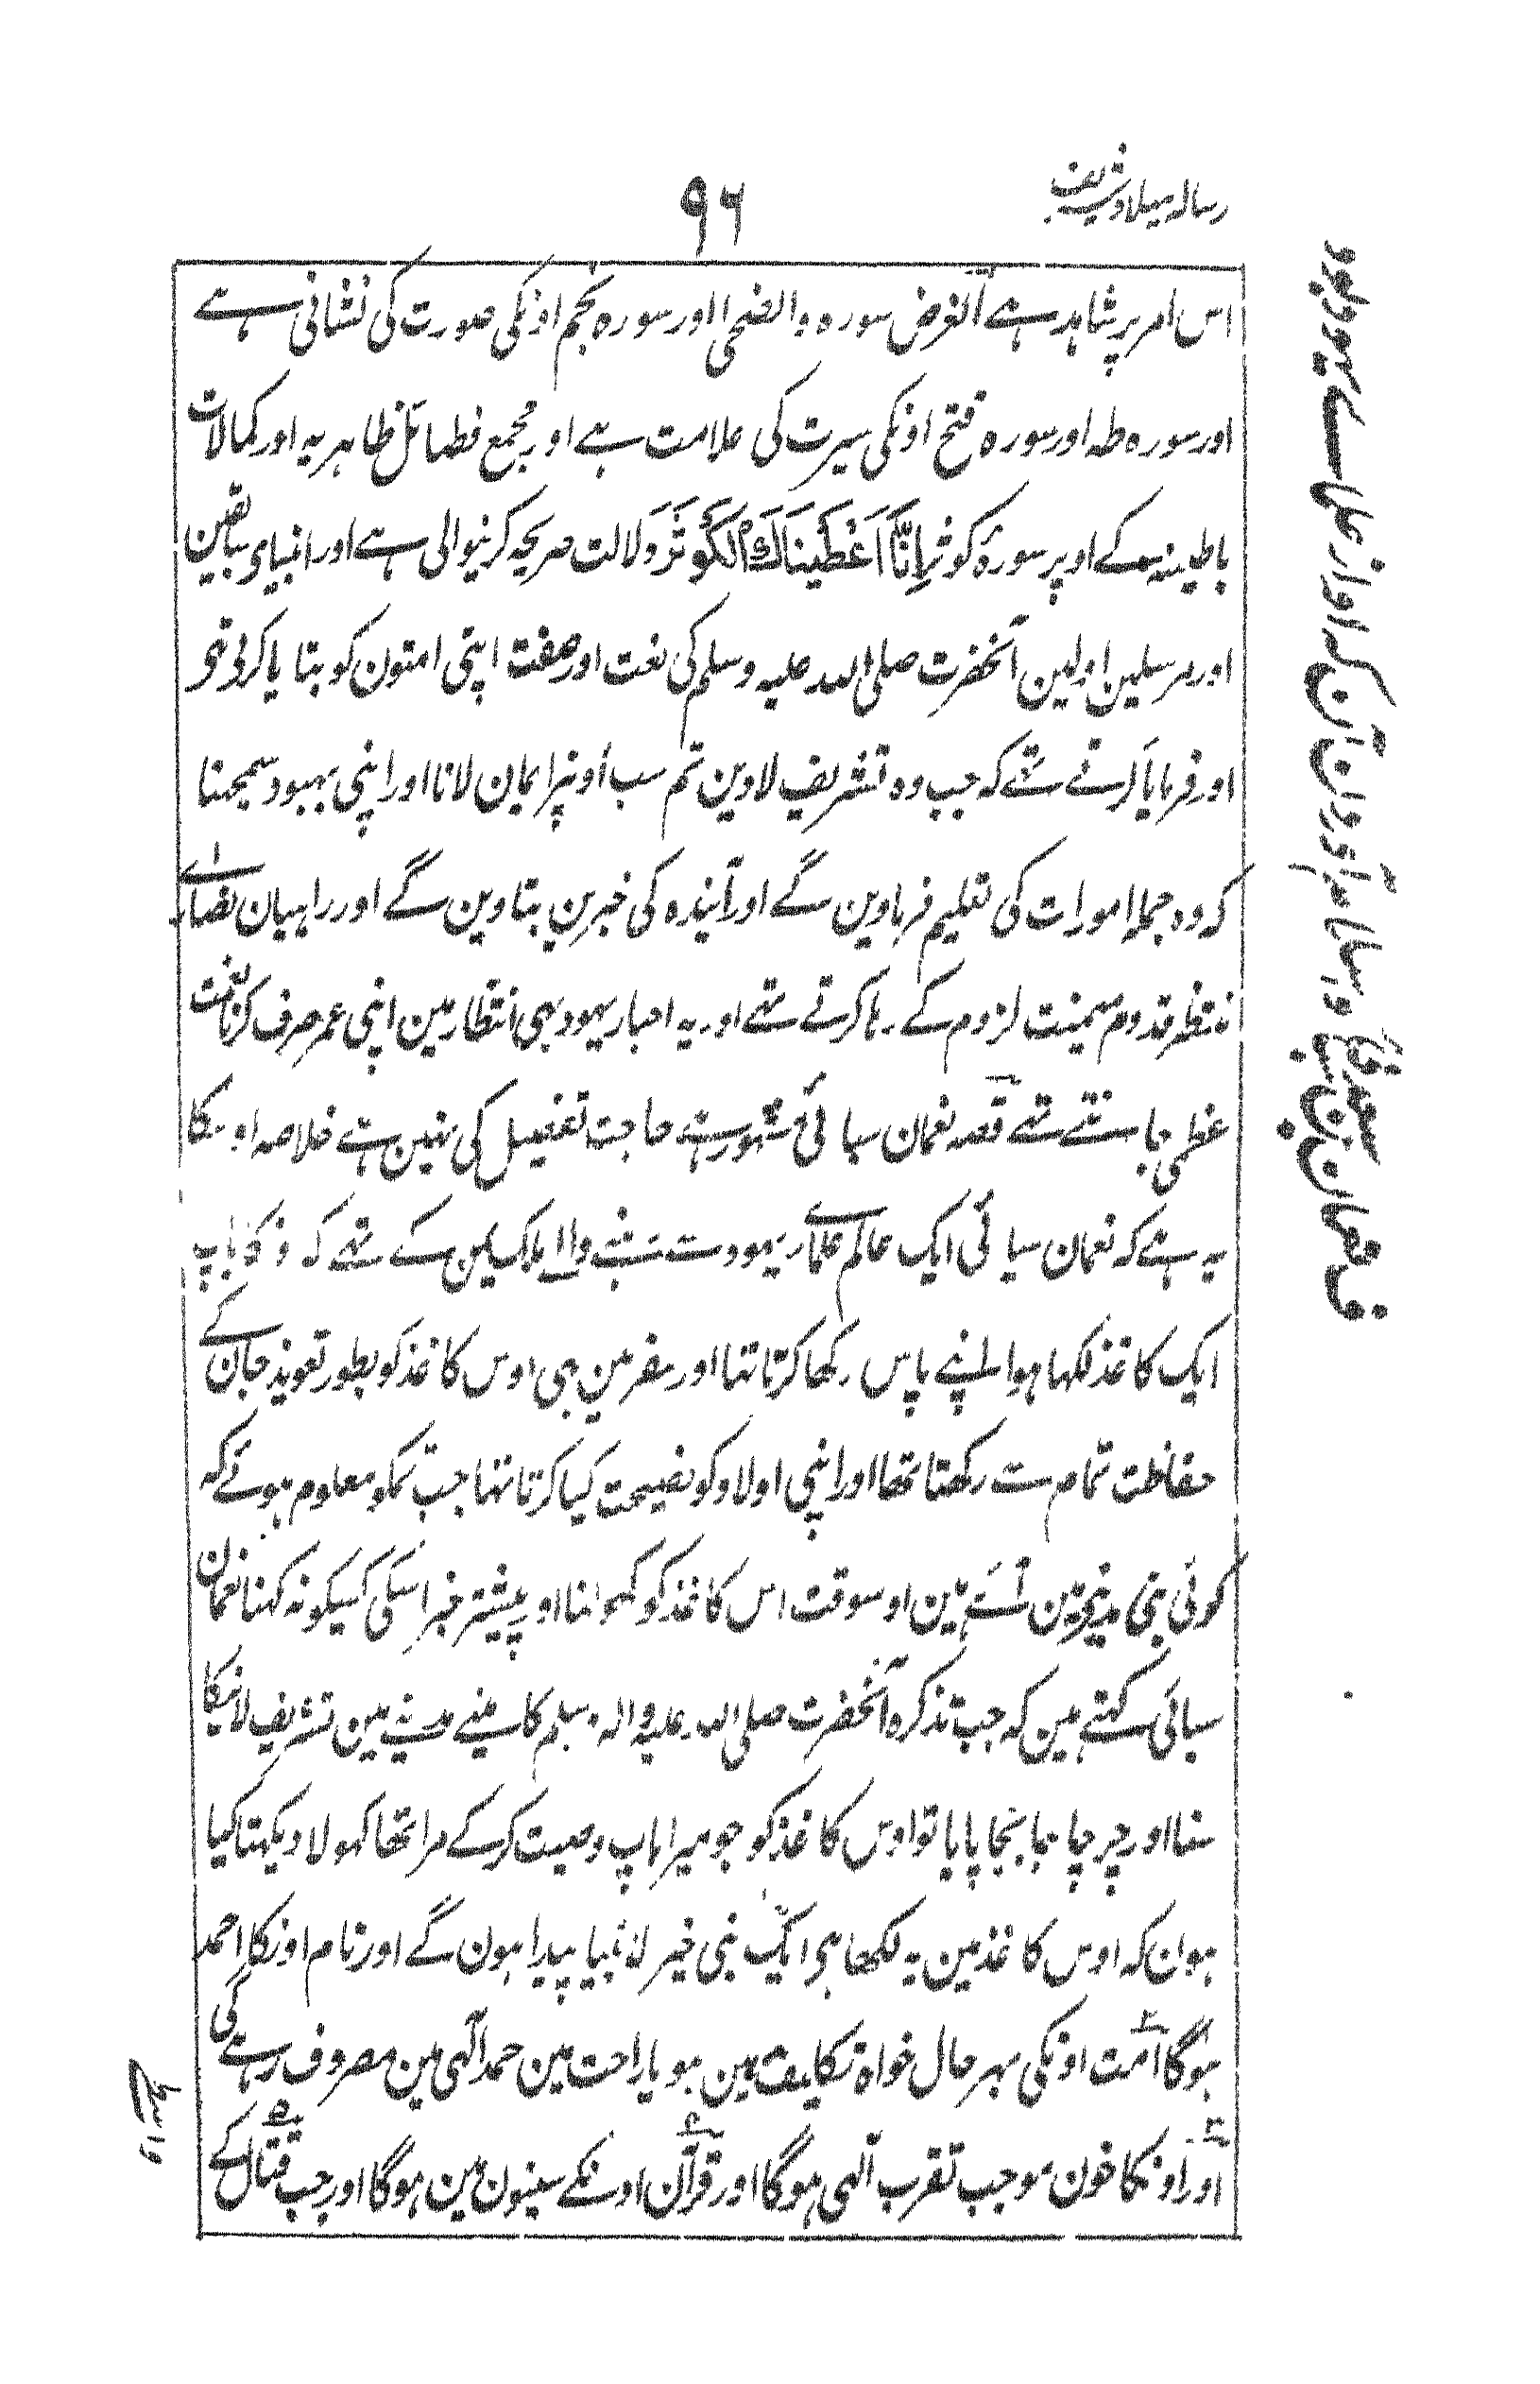 رساله میلاد شریف
۹۶
اس امر پر شاہد ہے الغرض سوره والضحی اور سوره نجم اونکی صورت کی نشانی ہے
اور سوره طہ اور سوره فتح اونکی سیرت کی علامت ہے اور مجمع فضائل ظاہریہ اور کمالات
باطینہ کے اوپر سورۂ کوثر اِنَّا اَعْطَیْنَاكَ الْكَوْثَرَ دلالت صریحہ کرنیوالی ہے اور انبیای سابقین
اور مرسلین اولین آنحضرت صلی اللہ علیہ وسلم کی نعت اور صفت اپنی امتون کو بتا یا کرتی تھی
اور فرمایا کرتے تھے کہ جب وہ تشریف لاوین تم سب اونپر ایمان لانا اور اپنی بہبود سمجھنا
کہ وہ جملہ امورات کی تعلیم فرماوین گے اور آئندہ کی خبرین بتاوین گے اور راہبان نصارے
منتظر قدوم میمنت لزوم کے رہا کرتے تھے اور یہ احبار یہود بھی انتظار مین اپنی عمر صرف کرنا نعمت
عظمی جانتے تھے قصہ نعمان سبائی مشہور ہے حاجت تفصیل کی نہین ہے خلاصہ اوسکا
یہ ہے کہ نعمان سبائی ایک عالم علمائے یہود سے رہنے والے ملک یمن کے تھے کہ اونکا باپ
ایک کاغذ لکہا ہوا اپنے پاس رکھا کرتا تہا اور سفر مین بھی اوس کاغذ کو بطور تعویذ جان کے
حفاظت تمام سے رکھتا تھا اور اپنی اولاد کو نصیحت کیا کرتا تہا جب تمکو معلوم ہوئے کہ
کوئی نبی مدینہ مین آئے ہین اوسوقت اس کاغذ کو کہولنا اور پیشتر خبر اسکی کسیکو نہ کہنا نعمان
سبائی کہتے ہین کہ جب تذکرہ آنحضرت صلی اللہ علیہ والہ وسلم کا مینے مدینے مین تشریف لانیکا
سنا اور چرچا جابجا پایا تو اوس کاغذ کو جو میرا باپ وصیت کرکے مرا تھا کہولا دیکہتا کیا
ہون کہ اوس کاغذ مین یہ لکھا ہی ایک نبی خیر الانبیا پیدا ہون گے اور نام اونکا احمد
ہوگا امت اونکی بہر حال خواہ تکلیف مین ہو یا راحت مین حمد الٓہی مین مصروف رہے گی
اور اونکا خون موجب تقرب الٓہی ہوگا اور قرآن اونکے سینون مین ہوگا اور جب قتال کے
واسطے